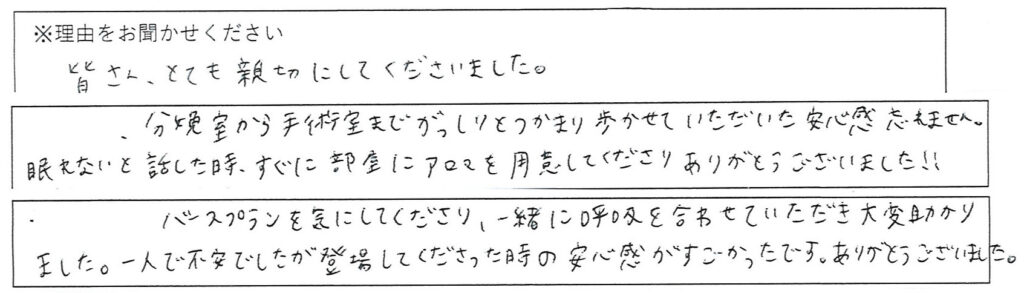 ※理由をお聞かせください
皆さん、とても親切にしてくださいました。
、分娩室から手術室までがっしりとつかまり歩かせていただいた安心感忘れません。
眠れないと話した時、すぐに部屋にアロマを用意してくださりありがとうございました!!
・バースプランを気にしてくださり、一緒に呼吸を合わせていただき大変助かり
ました。一人で不安でしたが登場してくださった時の安心感がすごかったです。ありがとうございました。